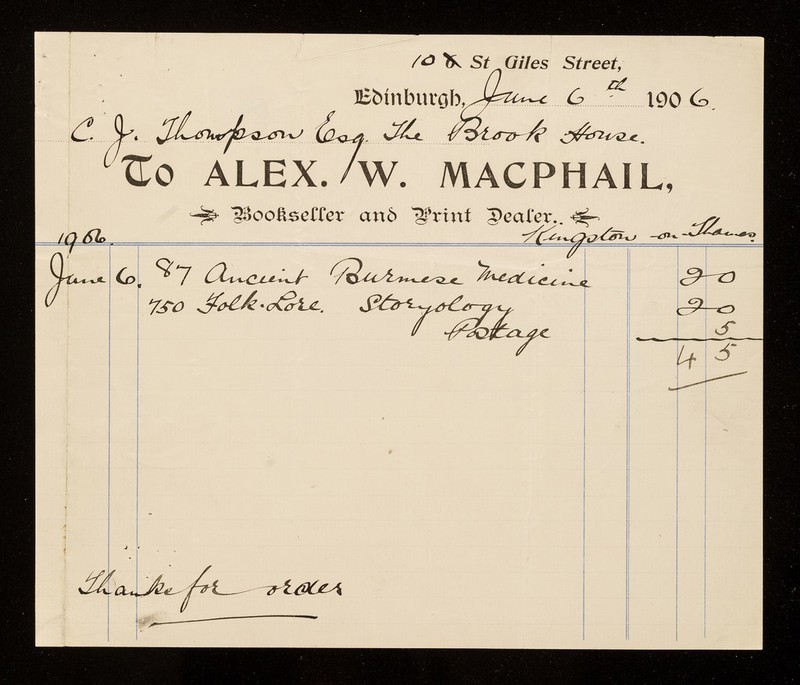 10 8 St Giles Street,
Edinburgh, June 6th 1906.
C. J. Thompson Esq. The Brook House.
To ALEX. W. MACPHAIL,
Bookseller and Print Dealer..
Kingston-on-Thames.
1906.
June 6. 87 Ancient Burmese Medicine 2 0
750 Folk-Lore. Storyology 2 0
Postage 5
4 5
Thanks for order